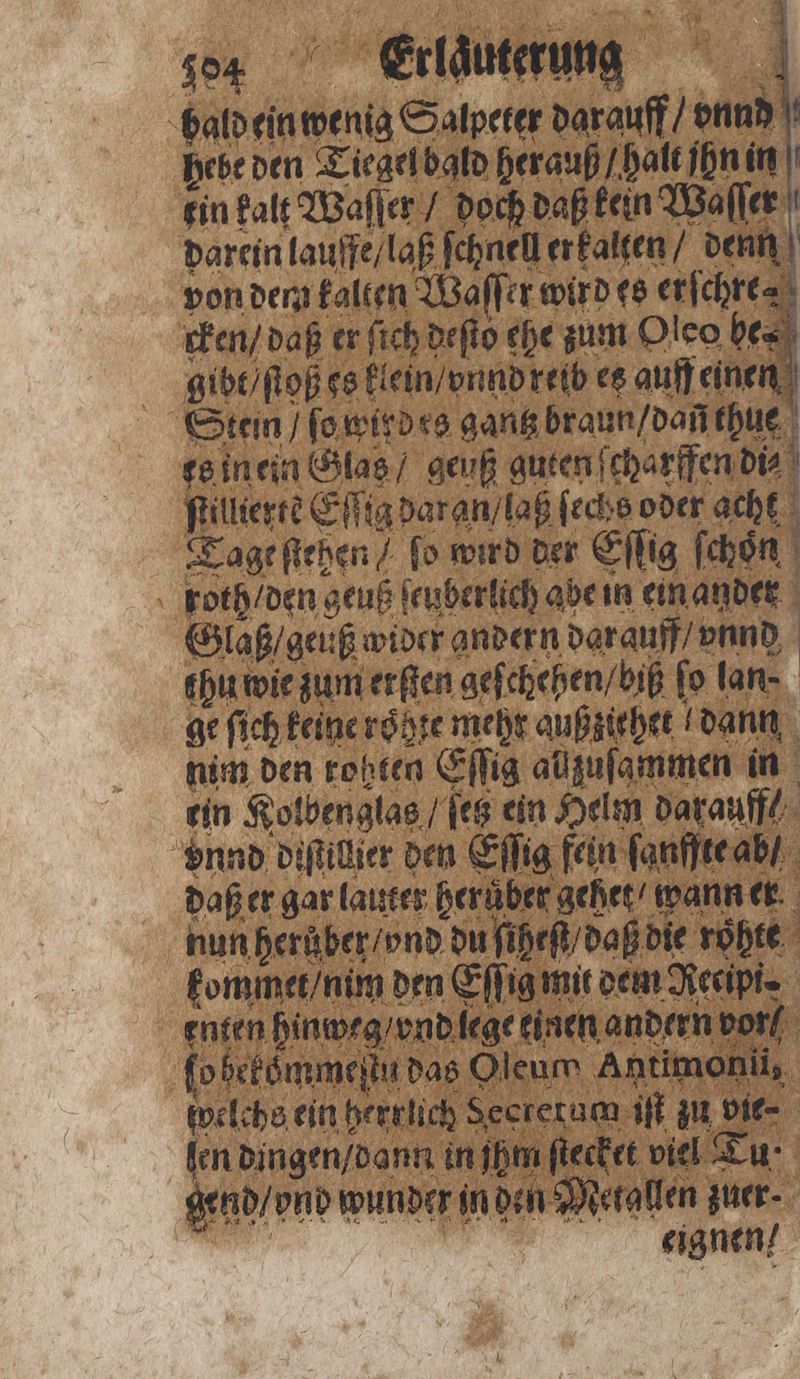 504 Erläuterung
bald ein wenig Salpeter darauff / vnnd
hebe den Tiegel bald herauß / halt jhn in
ein kalt Waſſer / doch daß kein Waſſer
darein lauffe / laß ſchnell erkalten / denn
von dem kalten Waſſer wird es erſchre-
cken / daß er ſich deſto ehe zum Oleo be-
gibt / ſtoß es klein / vnnd reib es auff einen
Stein / ſo wird es gantz braun / dañ thue
es in ein Glas / geuß guten ſcharffen di-
ſtilliertẽ Eſſig daran / laß ſechs oder acht
Tage ſtehen / ſo wird der Eſſig ſchön
roth / den geuß ſeuberlich abe in ein ander
Glaß / geuß wider andern darauff / vnnd
thu wie zum erſten geſchehen / biß ſo lan-
ge ſich keine röhte mehr außziehet / dann
nim den rohten Eſſig allzuſammen in
ein Kolbenglas / ſetz ein Helm darauff /
vnnd diſtillier den Eſſig fein ſanffte ab /
daß er gar lauter herüber gehet / wann er
nun herüber / vnd du ſiheſt / daß die röhte
kommet / nim den Eſſig mit dem Recipi-
enten hinweg / vnd lege einen andern vor /
ſo bekömmeſtu das Oleum Antimonii,
welchs ein herrlich Secretum iſt zu vie-
len dingen / dann in jhm ſtecket viel Tu-
gend / vnd wunder in den Metallen zuer-
eignen /